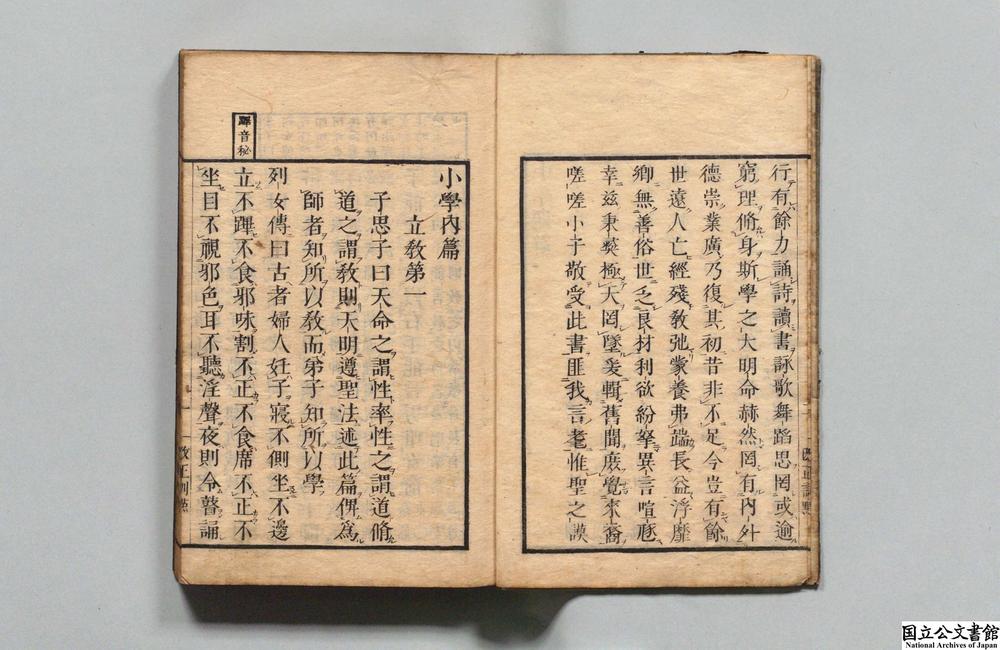 行有餘力誦詩讀書詠歌舞蹈思罔或逾
窮理脩身斯學之大明命赫然罔有內外
德崇業廣乃復其初昔非不足今豈有餘
世遠人亡經殘敎弛蒙養弗端長益浮靡
鄕無善俗世乏良材利欲紛拏異言喧豗
幸玆秉彝極天罔墜爰輯舊聞庶覺來裔
嗟嗟小子敬受此書匪我言耄惟聖之謨
小學內篇
立敎第一
子思子曰天命之謂性率性之謂道脩
道之謂敎則天明遵聖法述此篇俾爲
師者知所以敎而弟子知所以學
列女傳曰古者婦人妊子寢不側坐不邊
蹕音秘
立不蹕不食邪味割不正不食席不正不
坐目不視邪色耳不聽淫聲夜則令瞽誦
一
改正訓點
国立公文書館
National Archives of Japan